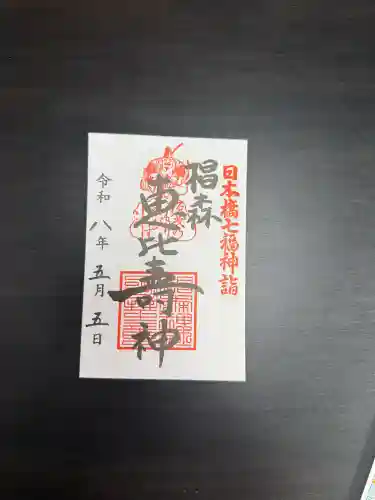 日本橋七福神詣
椙森
恵比寿神
令和八年五月五日